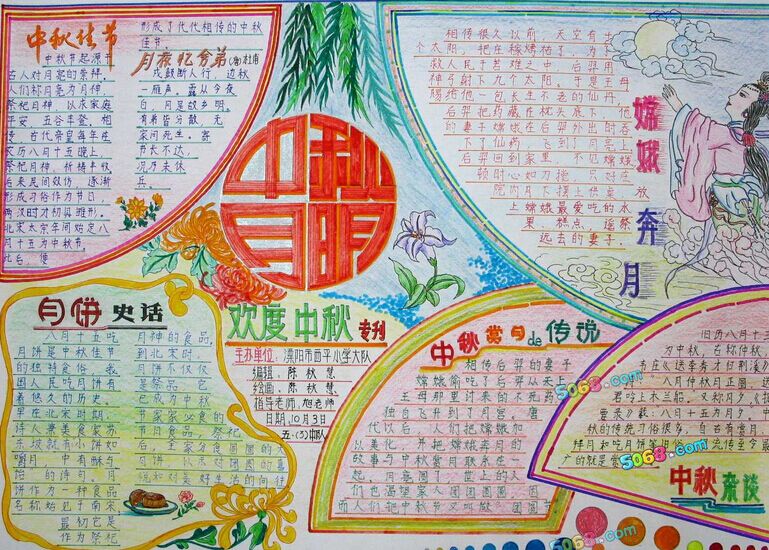 中秋佳节
中秋节起源于
古人对月亮的崇拜。
人们称月亮为月神,
祭祀月神,以求家庭
平安,五谷丰登,相
传,古代帝皇每年在
农历八月十五晚上,
祭祀月神,祈祷丰收
后来民间效仿,逐渐
形成习俗作为节日
两汉时才初具雏形。
北宋太宗年间始定八
月十五为中秋节。
此后,便
形成了代代相传的中秋
佳节。
月夜忆舍弟 (唐)杜甫
戍鼓断人行,边秋
一雁声。露从今夜
白,月是故乡明。
有弟皆分散,无
家问死生。寄
书长不达,
况乃未休
兵。
中秋月明
相传很久以前,天空有十
个太阳,把庄稼烤枯了,为了
救人民于苦难之中,后羿用
神弓射下九个太阳。于是王母
赐给他一包长生不老的仙丹,
后羿把药藏在枕头底下,他
的妻子嫦娥在后羿外出时吞
下了仙药,飞到了月亮上,
后羿回到家里,不见嫦娥
顿时心如刀搅,只好在
院内月下摆上供桌,放
上嫦娥最爱吃的水
果、糕点,遥祭
远去的妻子。
嫦娥奔月
月饼史话
八月十五吃
月饼是中秋佳节
的独特食俗,我
国人民吃月饼有
着悠久的历史,
早在北宋时期,
诗人兼美食家苏
东坡就有"小饼如
嚼月,中有酥与
饴"的诗句。月
饼作为一种食品
名称始见于南宋
最初它是
作为祭祀
月神的食品,
到北宋时,
月饼不仅仅
是祭品,它
已成为中秋
节家家必食的
节日食品,祭祀
后,全家分食圆圆的大
月饼,表示对团圆的喜
悦和对美好生活的向往
欢度中秋专刊
主办单位:濮阳市西平小学大队
编辑:陈秋慧
绘画:陈秋慧
指导老师:旭老师
日期:10月3日
五·(3)中队
中秋赏月de传说
相传后羿的妻子
嫦娥偷吃了后羿从天上
王母那里讨来的不死药
独自飞升到了月宫,唐
代以后,人们把嫦娥加
以美化,并把嫦娥奔月的
故事与中秋赏月联系在一
起,月亮圆了,世上的人
们也渴望家人团团圆圆,因
而人们把中秋节又叫做"团圆节
旧历八月十五
为中秋,古称仲秋,
韦庄《送李秀才归荆溪》
八月仲秋月正圆,送
君吟上木兰船。又称月夕。《提
要录》载:八月十五为月夕,中
秋的传统习俗很多,自古有赏月
拜月和吃月饼等习俗。流传至今最
广的就是赏
中秋杂谈
5068.com
5068.com
5068.com
5068.com
5068.com